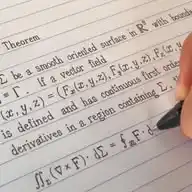 Theorem
Σ be a smooth oriented surface in ℝ³ with bound
= Γ . If a vector field
(x, y, z) = (Fₓ(x, y, z), Fᵧ(x, y, z), F
is defined and has continuous first order
derivatives in a region containing Σ,
∬_Σ (∇ × F) · dΣ = ∮